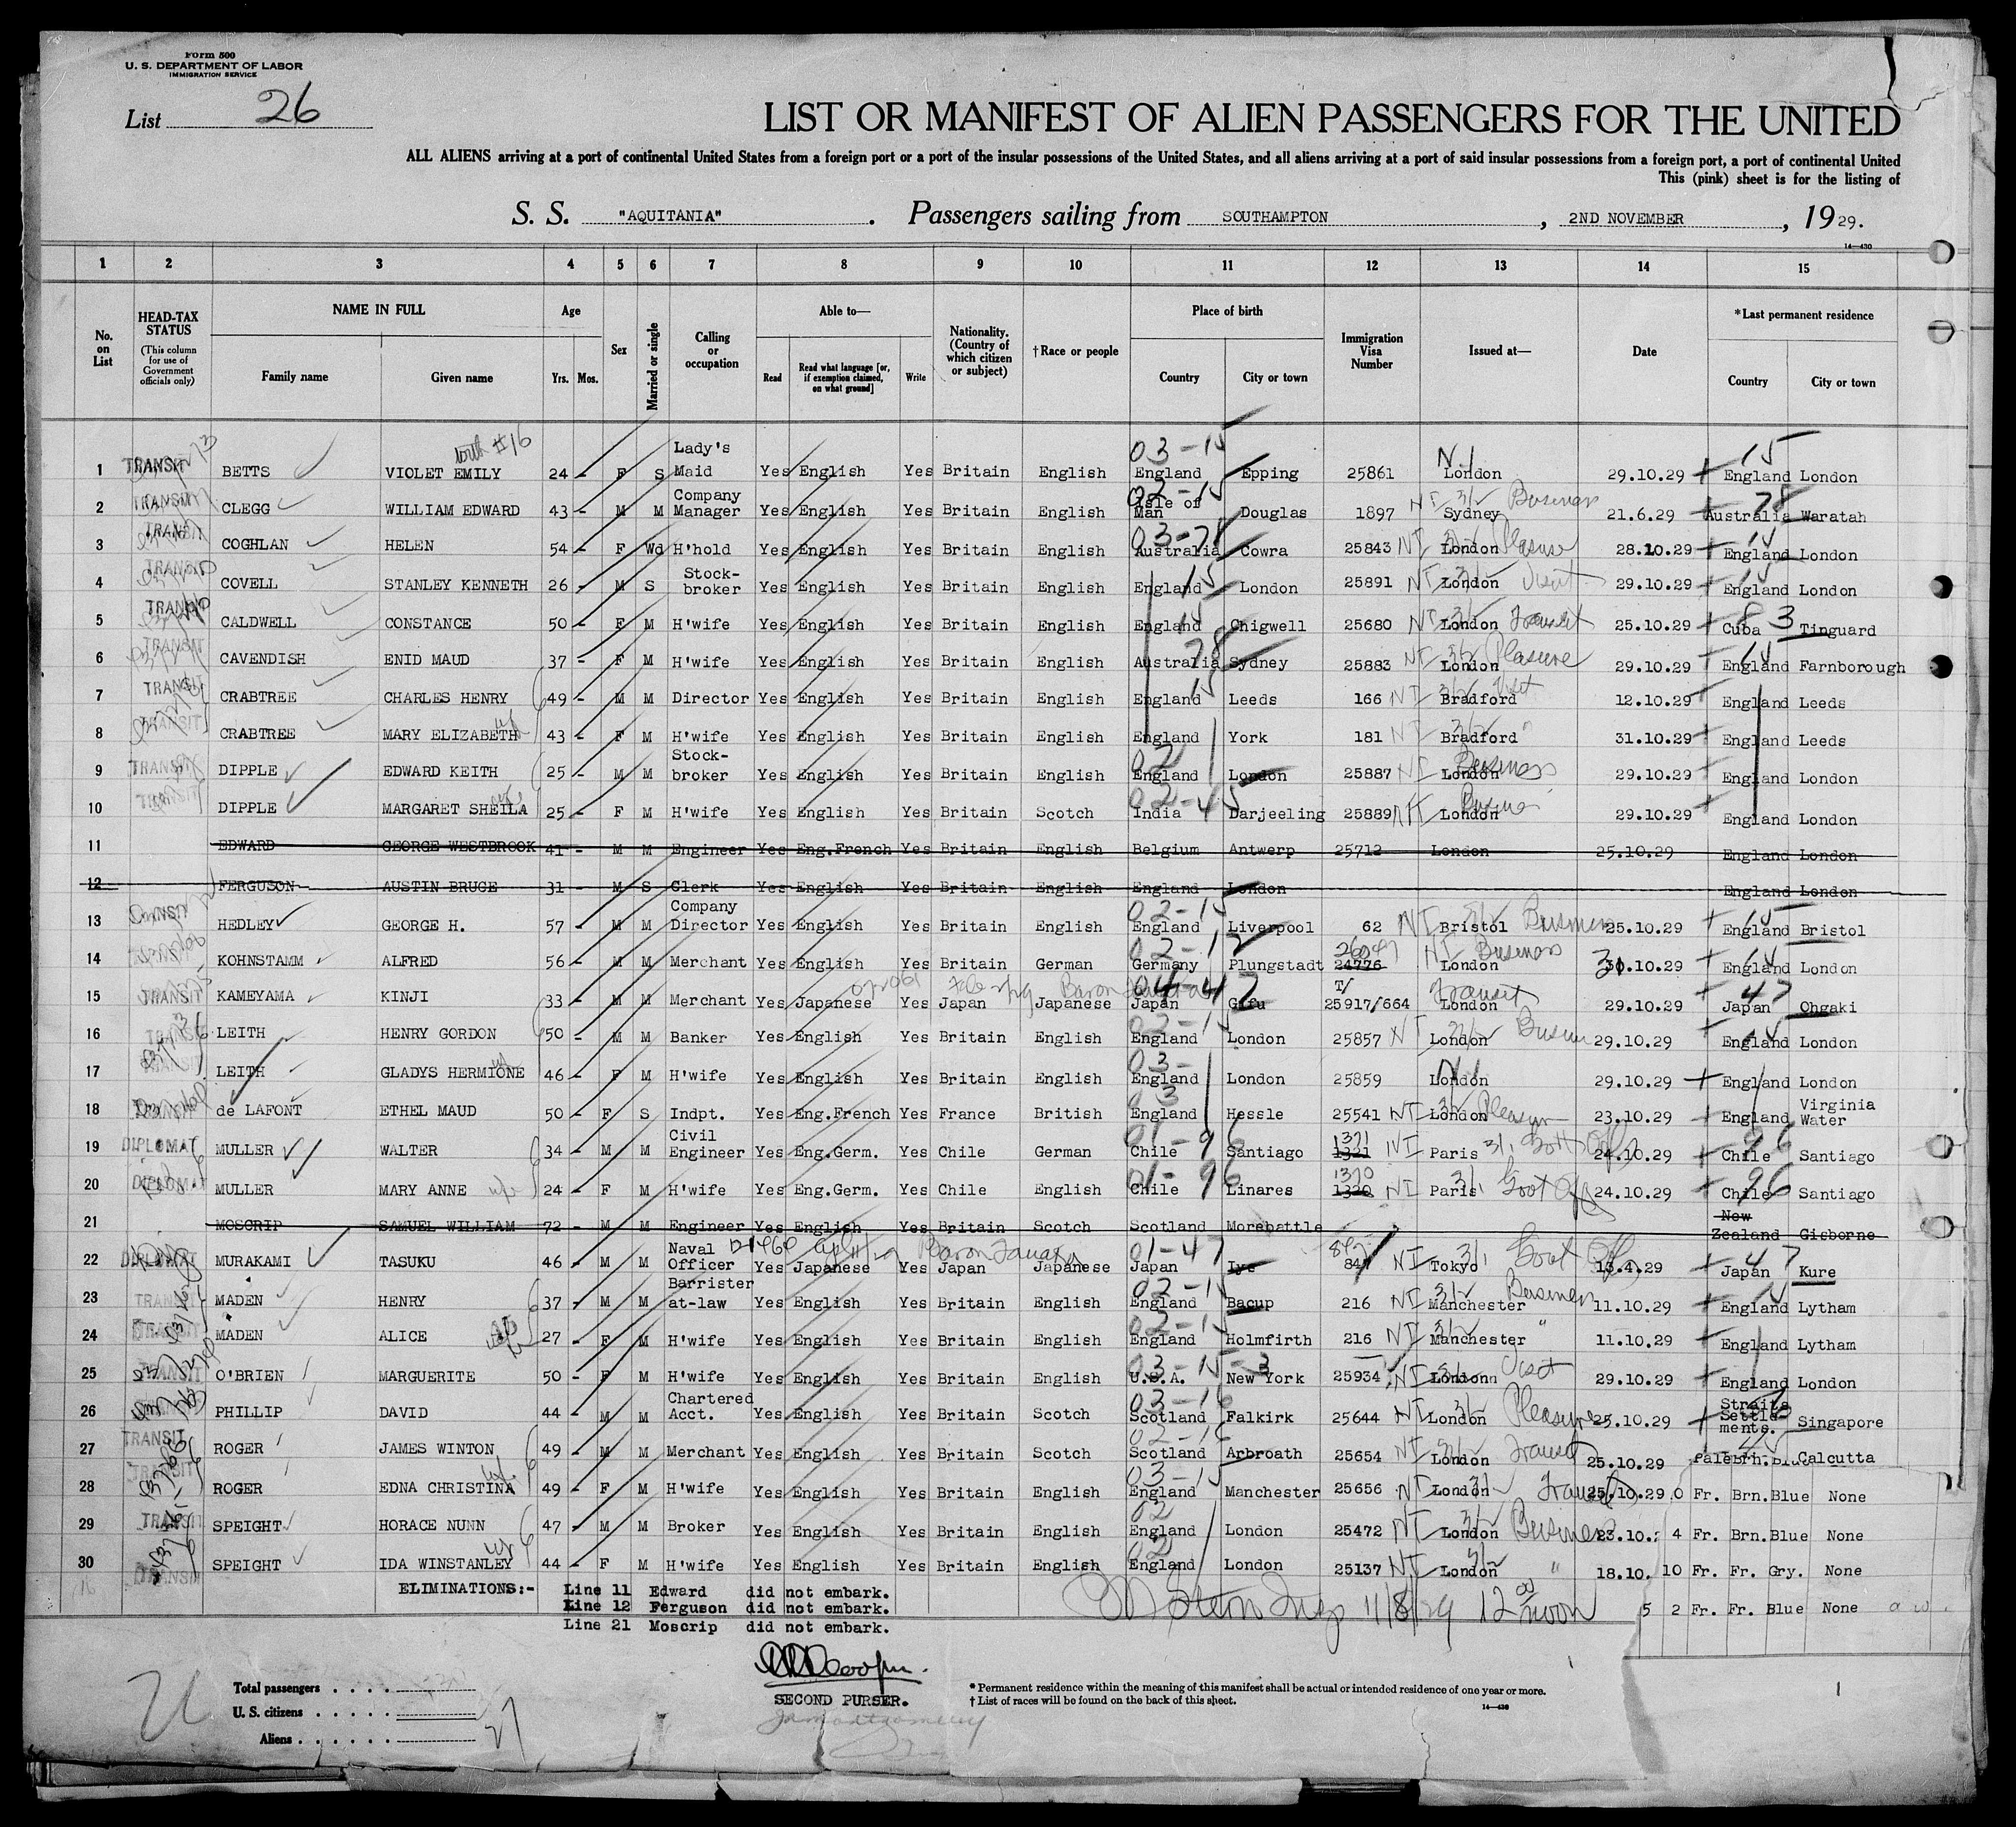 Form 500
U. S. DEPARTMENT OF LABOR
IMMIGRATION SERVICE
List 26
LIST OR MANIFEST OF ALIEN PASSENGERS FOR THE UNITED
ALL ALIENS arriving at a port of continental United States from a foreign port or a port of the insular possessions of the United States, and all aliens arriving at a port of said insular possessions from a foreign port, a port of continental United
This (pink) sheet is for the listing of
S. S. "AQUITANIA". Passengers sailing from SOUTHAMPTON, 2ND NOVEMBER, 1929.
14—430
1 2 3 4 5 6 7 8 9 10 11 12 13 14 15
No. on List
HEAD-TAX STATUS (This column for use of Government officials only)
NAME IN FULL Family name Given name
Age Yrs. Mos.
Sex
Married or single
Calling or occupation
Able to— Read Read what language [or, if exemption claimed, on what ground] Write
Nationality. (Country of which citizen or subject)
†Race or people
Place of birth Country City or town
Immigration Visa Number
Issued at—
Date
*Last permanent residence Country City or town
with #16
1 TRANSIT BETTS VIOLET EMILY 24 - F S Lady's Maid Yes English Yes Britain English 03-15 England Epping 25861 N.I London 29.10.29 15 England London
2 TRANSIT CLEGG WILLIAM EDWARD 43 - M M Company Manager Yes English Yes Britain English 02-15 Isle of Man Douglas 1897 NI 3/2 Sydney Business 21.6.29 78 Australia Waratah
3 TRANSIT COGHLAN HELEN 54 - F Wd H'hold Yes English Yes Britain English 03-78 Australia Cowra 25843 NI London Pleasure 28.10.29 England London
4 TRANSIT COVELL STANLEY KENNETH 26 - M S Stock-broker Yes English Yes Britain English 15 England London 25891 NI London Visit 29.10.29 England London
5 TRANSIT CALDWELL CONSTANCE 50 - F M H'wife Yes English Yes Britain English 15 England Chigwell 25680 NI 3/2 London Transit 25.10.29 Cuba 3 Tinguard
6 TRANSIT CAVENDISH ENID MAUD 37 - F M H'wife Yes English Yes Britain English 78 Australia Sydney 25883 NI 3/2 London Pleasure 29.10.29 England Farnborough
7 TRANSIT CRABTREE CHARLES HENRY 49 - M M Director Yes English Yes Britain English 15 England Leeds 166 NI 3/2 Bradford Visit 12.10.29 England Leeds
8 TRANSIT CRABTREE MARY ELIZABETH wf 43 - F M H'wife Yes English Yes Britain English England York 181 NI 3/2 Bradford " 31.10.29 England Leeds
9 TRANSIT DIPPLE EDWARD KEITH 25 - M M Stock-broker Yes English Yes Britain English 02 England London 25887 NI London Business 29.10.29 England London
10 TRANSIT DIPPLE MARGARET SHEILA wife 25 - F M H'wife Yes English Yes Britain Scotch 02-45 India Darjeeling 25889 NI London 29.10.29 England London
11 EDWARD GEORGE WESTBROOK 41 - M M Engineer Yes Eng.French Yes Britain English Belgium Antwerp 25712 London 25.10.29 England London
12 FERGUSON AUSTIN BRUCE 31 - M S Clerk Yes English Yes Britain English England London England London
13 TRANSIT HEDLEY GEORGE H. 57 - M M Company Director Yes English Yes Britain English 02-15 England Liverpool 62 NI 3/2 Bristol Business 25.10.29 15 England Bristol
14 KOHNSTAMM ALFRED 56 - M M Merchant Yes English Yes Britain German 02-12 Germany Plungstadt 26047 24776 NI London Business 30.10.29 England London
15 TRANSIT KAMEYAMA KINJI 33 - M M Merchant Yes Japanese Yes Japan Japanese 04-47 Japan Gifu T/ 25917/664 Transit London 29.10.29 47 Japan Ohgaki
16 TRANSIT LEITH HENRY GORDON 50 - M M Banker Yes English Yes Britain English 02-15 England London 25857 NI 3/2 London 29.10.29 England London
17 TRANSIT LEITH GLADYS HERMIONE wf 46 - F M H'wife Yes English Yes Britain English 03- England London 25859 N.I London 29.10.29 England London
18 TRANSIT de LAFONT ETHEL MAUD 50 - F S Indpt. Yes Eng.French Yes France British 03 England Hessle 25541 NI 3/2 London 23.10.29 England Virginia Water
19 DIPLOMAT MULLER WALTER 34 - M M Civil Engineer Yes Eng.Germ. Yes Chile German 01-96 Chile Santiago 1371 1321 NI Paris 3/1 24.10.29 96 Chile Santiago
20 DIPLOMAT MULLER MARY ANNE wife 24 - F M H'wife Yes Eng.Germ. Yes Chile English 01-96 Chile Linares 1370 1320 NI Paris 3/1 Govt Off 24.10.29 96 Chile Santiago
21 MOSCRIP SAMUEL WILLIAM 72 - M M Engineer Yes English Yes Britain Scotch Scotland Morebattle New Zealand Gisborne
22 DIPLOMAT MURAKAMI TASUKU 46 - M M Naval Officer Yes Japanese Yes Japan Japanese 01-47 Japan Iye 847 NI Tokyo 3/1 Govt Off 13.4.29 47 Japan Kure
23 TRANSIT MADEN HENRY 37 - M M Barrister at-law Yes English Yes Britain English 02-15 England Bacup 216 NI 3/2 Manchester Business 11.10.29 England Lytham
24 TRANSIT MADEN ALICE wife 27 - F M H'wife Yes English Yes Britain English 02-15 England Holmfirth 216 NI 3/2 Manchester " 11.10.29 England Lytham
25 TRANSIT O'BRIEN MARGUERITE 50 - F M H'wife Yes English Yes Britain English 03-15-3 U.S.A. New York 25934 NI London Visit 29.10.29 England London
26 PHILLIP DAVID 44 - M M Chartered Acct. Yes English Yes Britain Scotch 03-16 Scotland Falkirk 25644 NI 3/2 London Pleasure 25.10.29 Straits Settlements. Singapore
27 TRANSIT ROGER JAMES WINTON 49 - M M Merchant Yes English Yes Britain Scotch 02-16 Scotland Arbroath 25654 NI London Transit 25.10.29 Calcutta
28 TRANSIT ROGER EDNA CHRISTINA wf. 49 - F M H'wife Yes English Yes Britain English 03-15 England Manchester 25656 NI London Transit 25.10.29 0 Fr. Brn. Blue None
29 TRANSIT SPEIGHT HORACE NUNN 47 - M M Broker Yes English Yes Britain English 02 England London 25472 NI 3/2 London Business 23.10. 4 Fr. Brn. Blue None
30 TRANSIT SPEIGHT IDA WINSTANLEY wf 44 - F M H'wife Yes English Yes Britain English 02 England London 25137 NI 3/2 London " 18.10. 10 Fr. Fr. Gry. None
ELIMINATIONS:- Line 11 Edward did not embark.
Line 12 Ferguson did not embark.
Line 21 Moscrip did not embark.
11/8/29 12 00 noon
5 2 Fr. Fr. Blue None
SECOND PURSER.
Total passengers
U. S. citizens
Aliens 27
* Permanent residence within the meaning of this manifest shall be actual or intended residence of one year or more.
† List of races will be found on the back of this sheet.
14—430